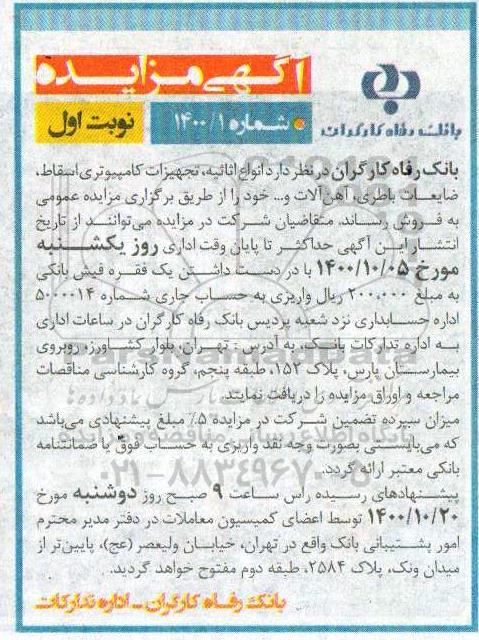 آگهی مزایده
بانک رفاه کارگران
شماره ۱۴۰۰/۱
نوبت اول
بانک رفاه کارگران در نظر دارد انواع اثاثیه، تجهیزات کامپیوتری اسقاط،
ضایعات باطری، آهن‌آلات و... خود را از طریق برگزاری مزایده عمومی
به فروش رساند. متقاضیان شرکت در مزایده می‌توانند از تاریخ
انتشار این آگهی حداکثر تا پایان وقت اداری روز یکشنبه
مورخ ۱۴۰۰/۱۰/۰۵ با در دست داشتن یک فقره فیش بانکی
به مبلغ ۲۰۰،۰۰۰ ریال واریزی به حساب جاری شماره ۵۰۰۰۰۱۴
اداره حسابداری نزد شعبه پردیس بانک رفاه کارگران در ساعات اداری
به اداره تدارکات بانک، به آدرس: تهران، بلوار کشاورز، روبروی
بیمارستان پارس، پلاک ۱۵۲، طبقه پنجم، گروه کارشناسی مناقصات
مراجعه و اوراق مزایده را دریافت نمایند.
میزان سپرده تضمین شرکت در مزایده ۵٪ مبلغ پیشنهادی می‌باشد
که می‌بایستی بصورت وجه نقد واریزی به حساب فوق یا ضمانتنامه
بانکی معتبر ارائه گردد.
پیشنهادهای رسیده راس ساعت ۹ صبح روز دوشنبه مورخ
۱۴۰۰/۱۰/۲۰ توسط اعضای کمیسیون معاملات در دفتر مدیر محترم
امور پشتیبانی بانک واقع در تهران، خیابان ولیعصر (عج)، پایین‌تر از
میدان ونک، پلاک ۲۵۸۴، طبقه دوم مفتوح خواهد گردید.
بانک رفاه کارگران - اداره تدارکات
ParsNamadData
۰۲۱-۸۸۳۴۹۶۷۰-۵